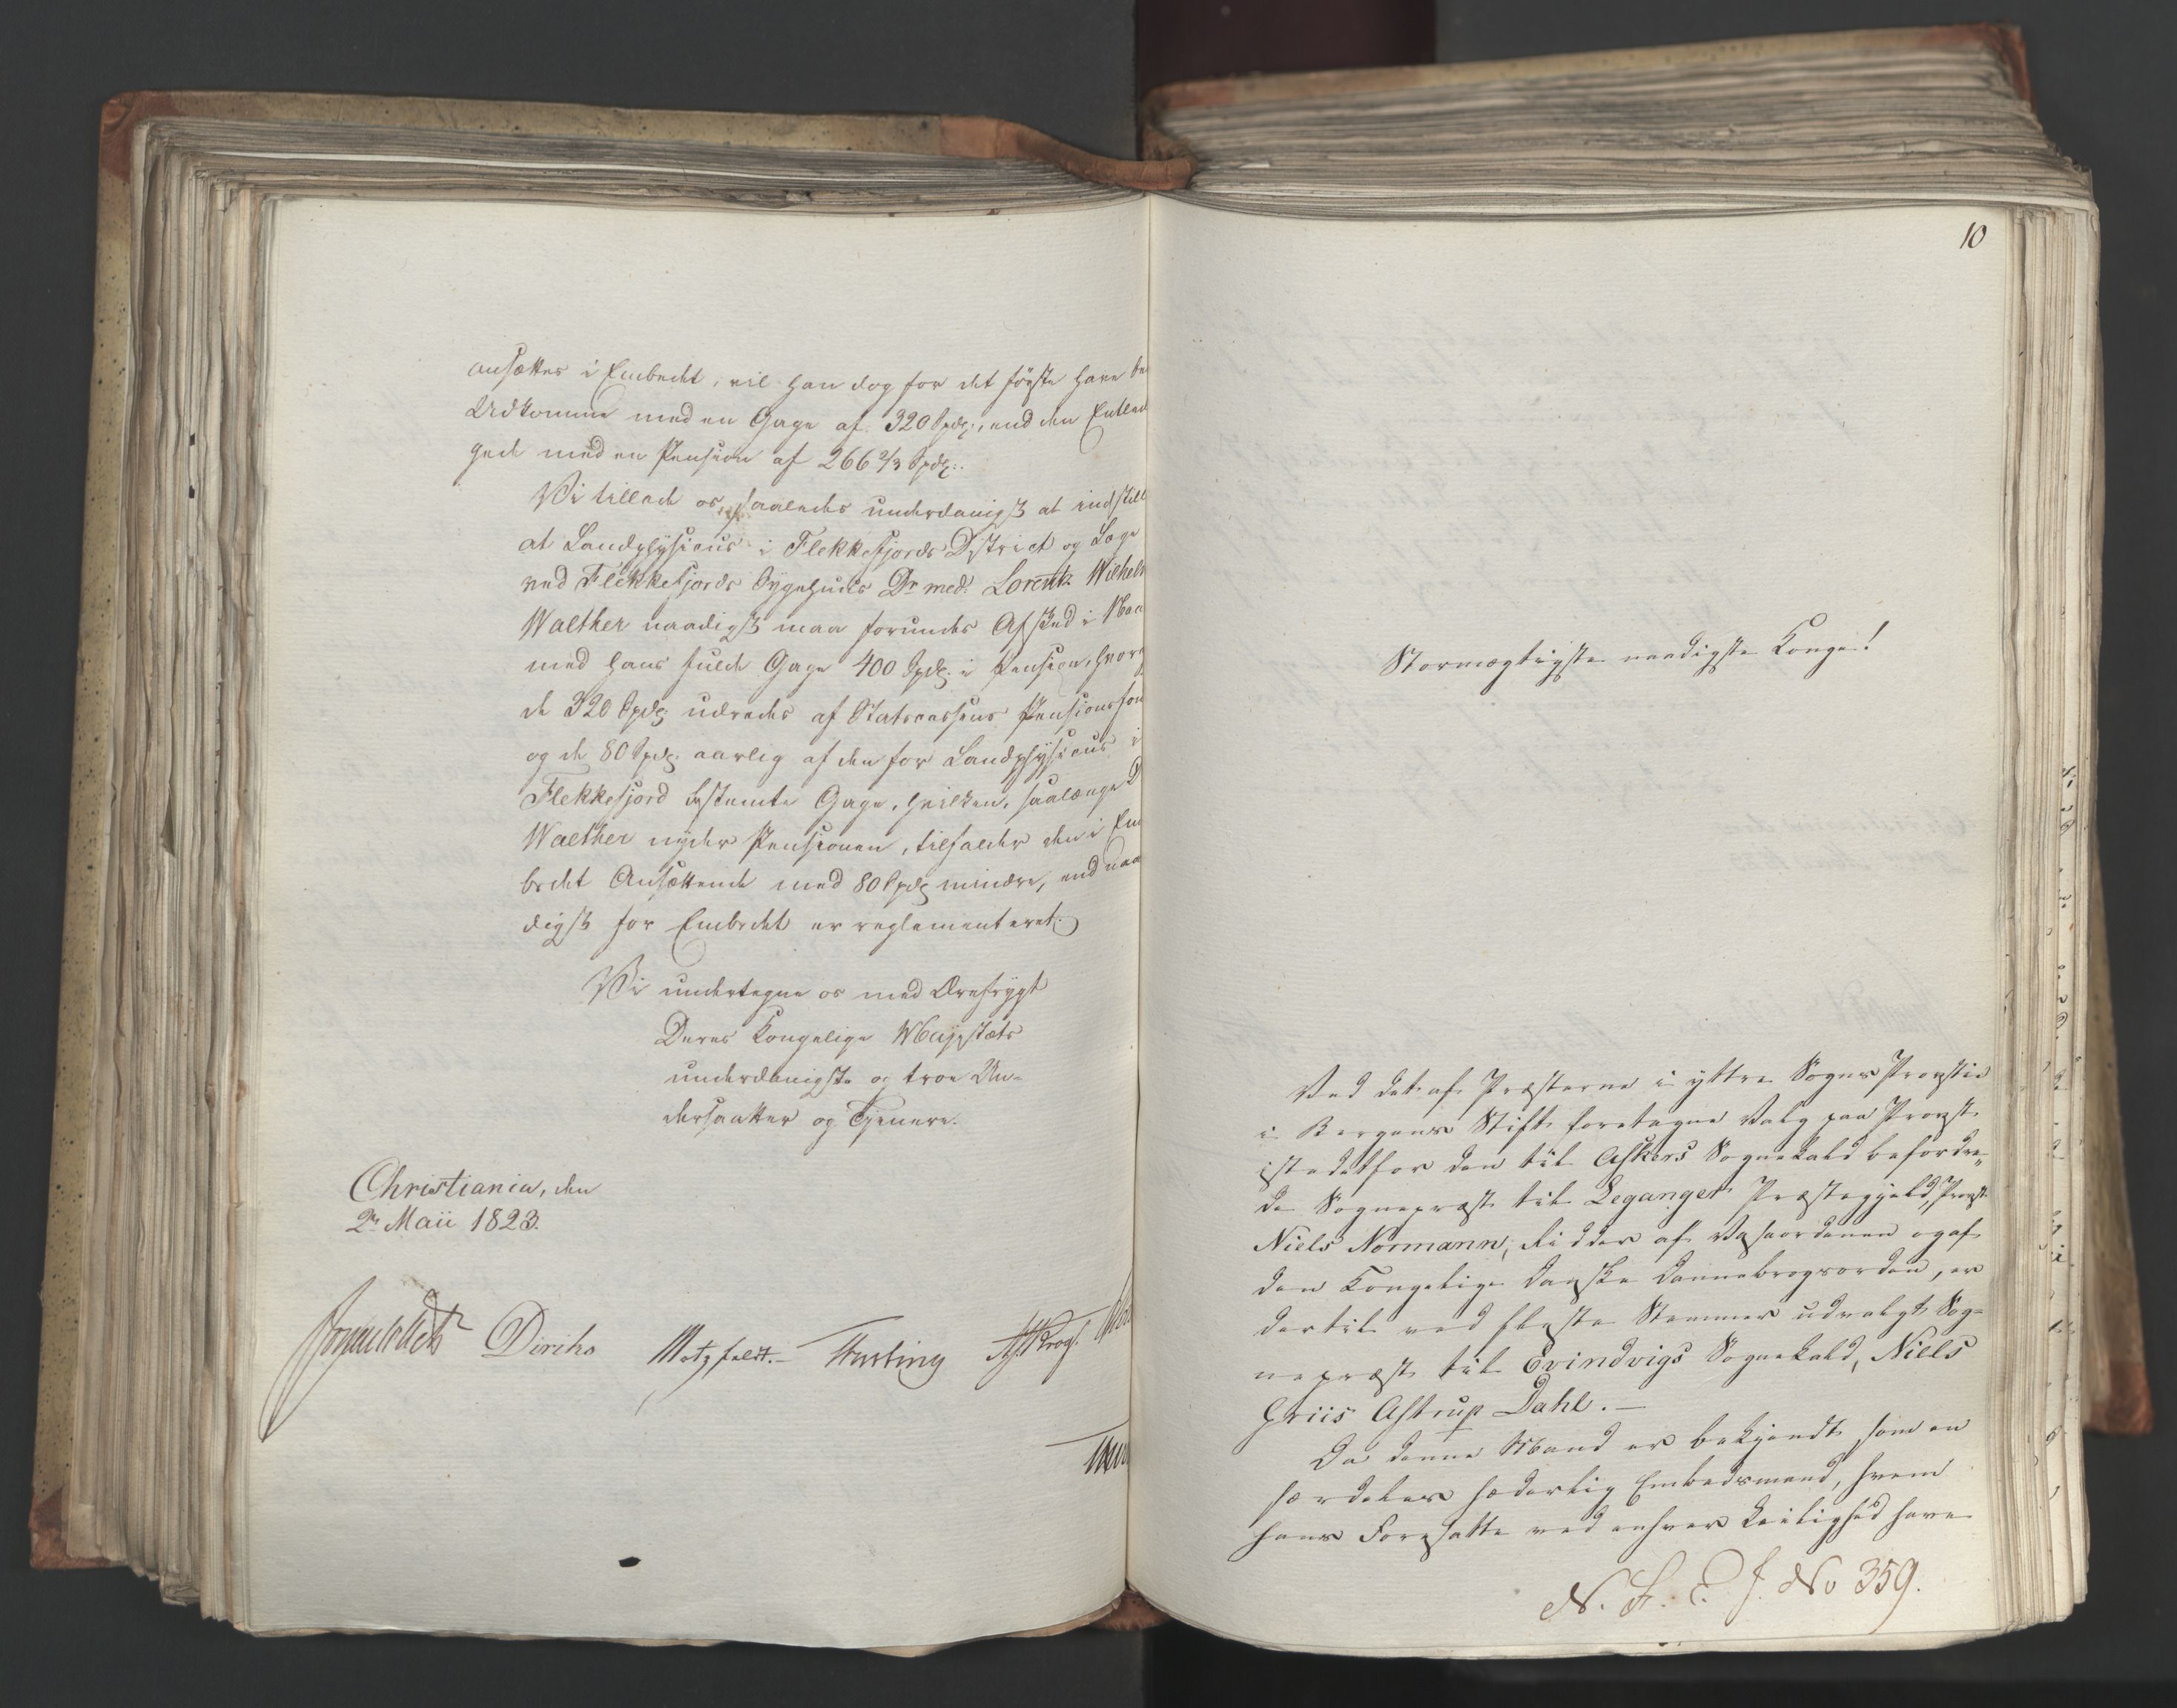 ansættes i Embedet, vil han dog for det første have
Udkomme med en Gage af 320 Spdlr, end den Entled
gede med en Pension af 266 2/3 Spdlr.
Vi tillade os, saaledes underdanigst at indstill
at Landphysicus i Flekkefjords District og Læge
ved Flekkefjords Sygehuus Dr med: Lorentz Wilhelm
Walther naadigst maa forundes Afsked i Naa
med hans fulde Gage 400 Spdlr i Pension, hvor
de 320 Spdlr udredes af Statscassens Pensionsfon
og de 80 Spdlr aarlig af den for Landphysicus i
Flekkefjord bestemte Gage, hvilken, saalænge D
Walther nyder Pensionen, tilfalder den i Em
bedet Ansættende med 80 Spdlr mindre, end naa
digst for Embedet er reglementeret.
Vi undertegne os med Ærefrygt
Deres Kongelige Majestæts
underdanigste og troe Un-
dersaatter og Tjenere.
Christiania, den
2n Maii 1823.
Diriks Motzfeldt. Krogh
10
Stormægtigste naadigste Konge!
Ved det af Præsterne i yttre Sogns Provstie
i Bergens Stift foretagne Valg paa Provst
istedetfor den til Askers Sognekald befordre-
de Sognepræst til Leganger Præstegjeld, Provst
Niels Normann, Ridder af Vasaordenen og af
den Kongelige Danske Dannebrogsorden, er
dertil ved fleste Stemmer udvalgt Sog-
nepræst til Evindvigs Sognekald, Niels
Griis Alstrup Dahl. —
Da denne Mand er bekjendt som en
særdeles hæderlig Embedsmand, hvem
hans Foresatte ved enhver Leilighed have
N. F. C. J. No 359.